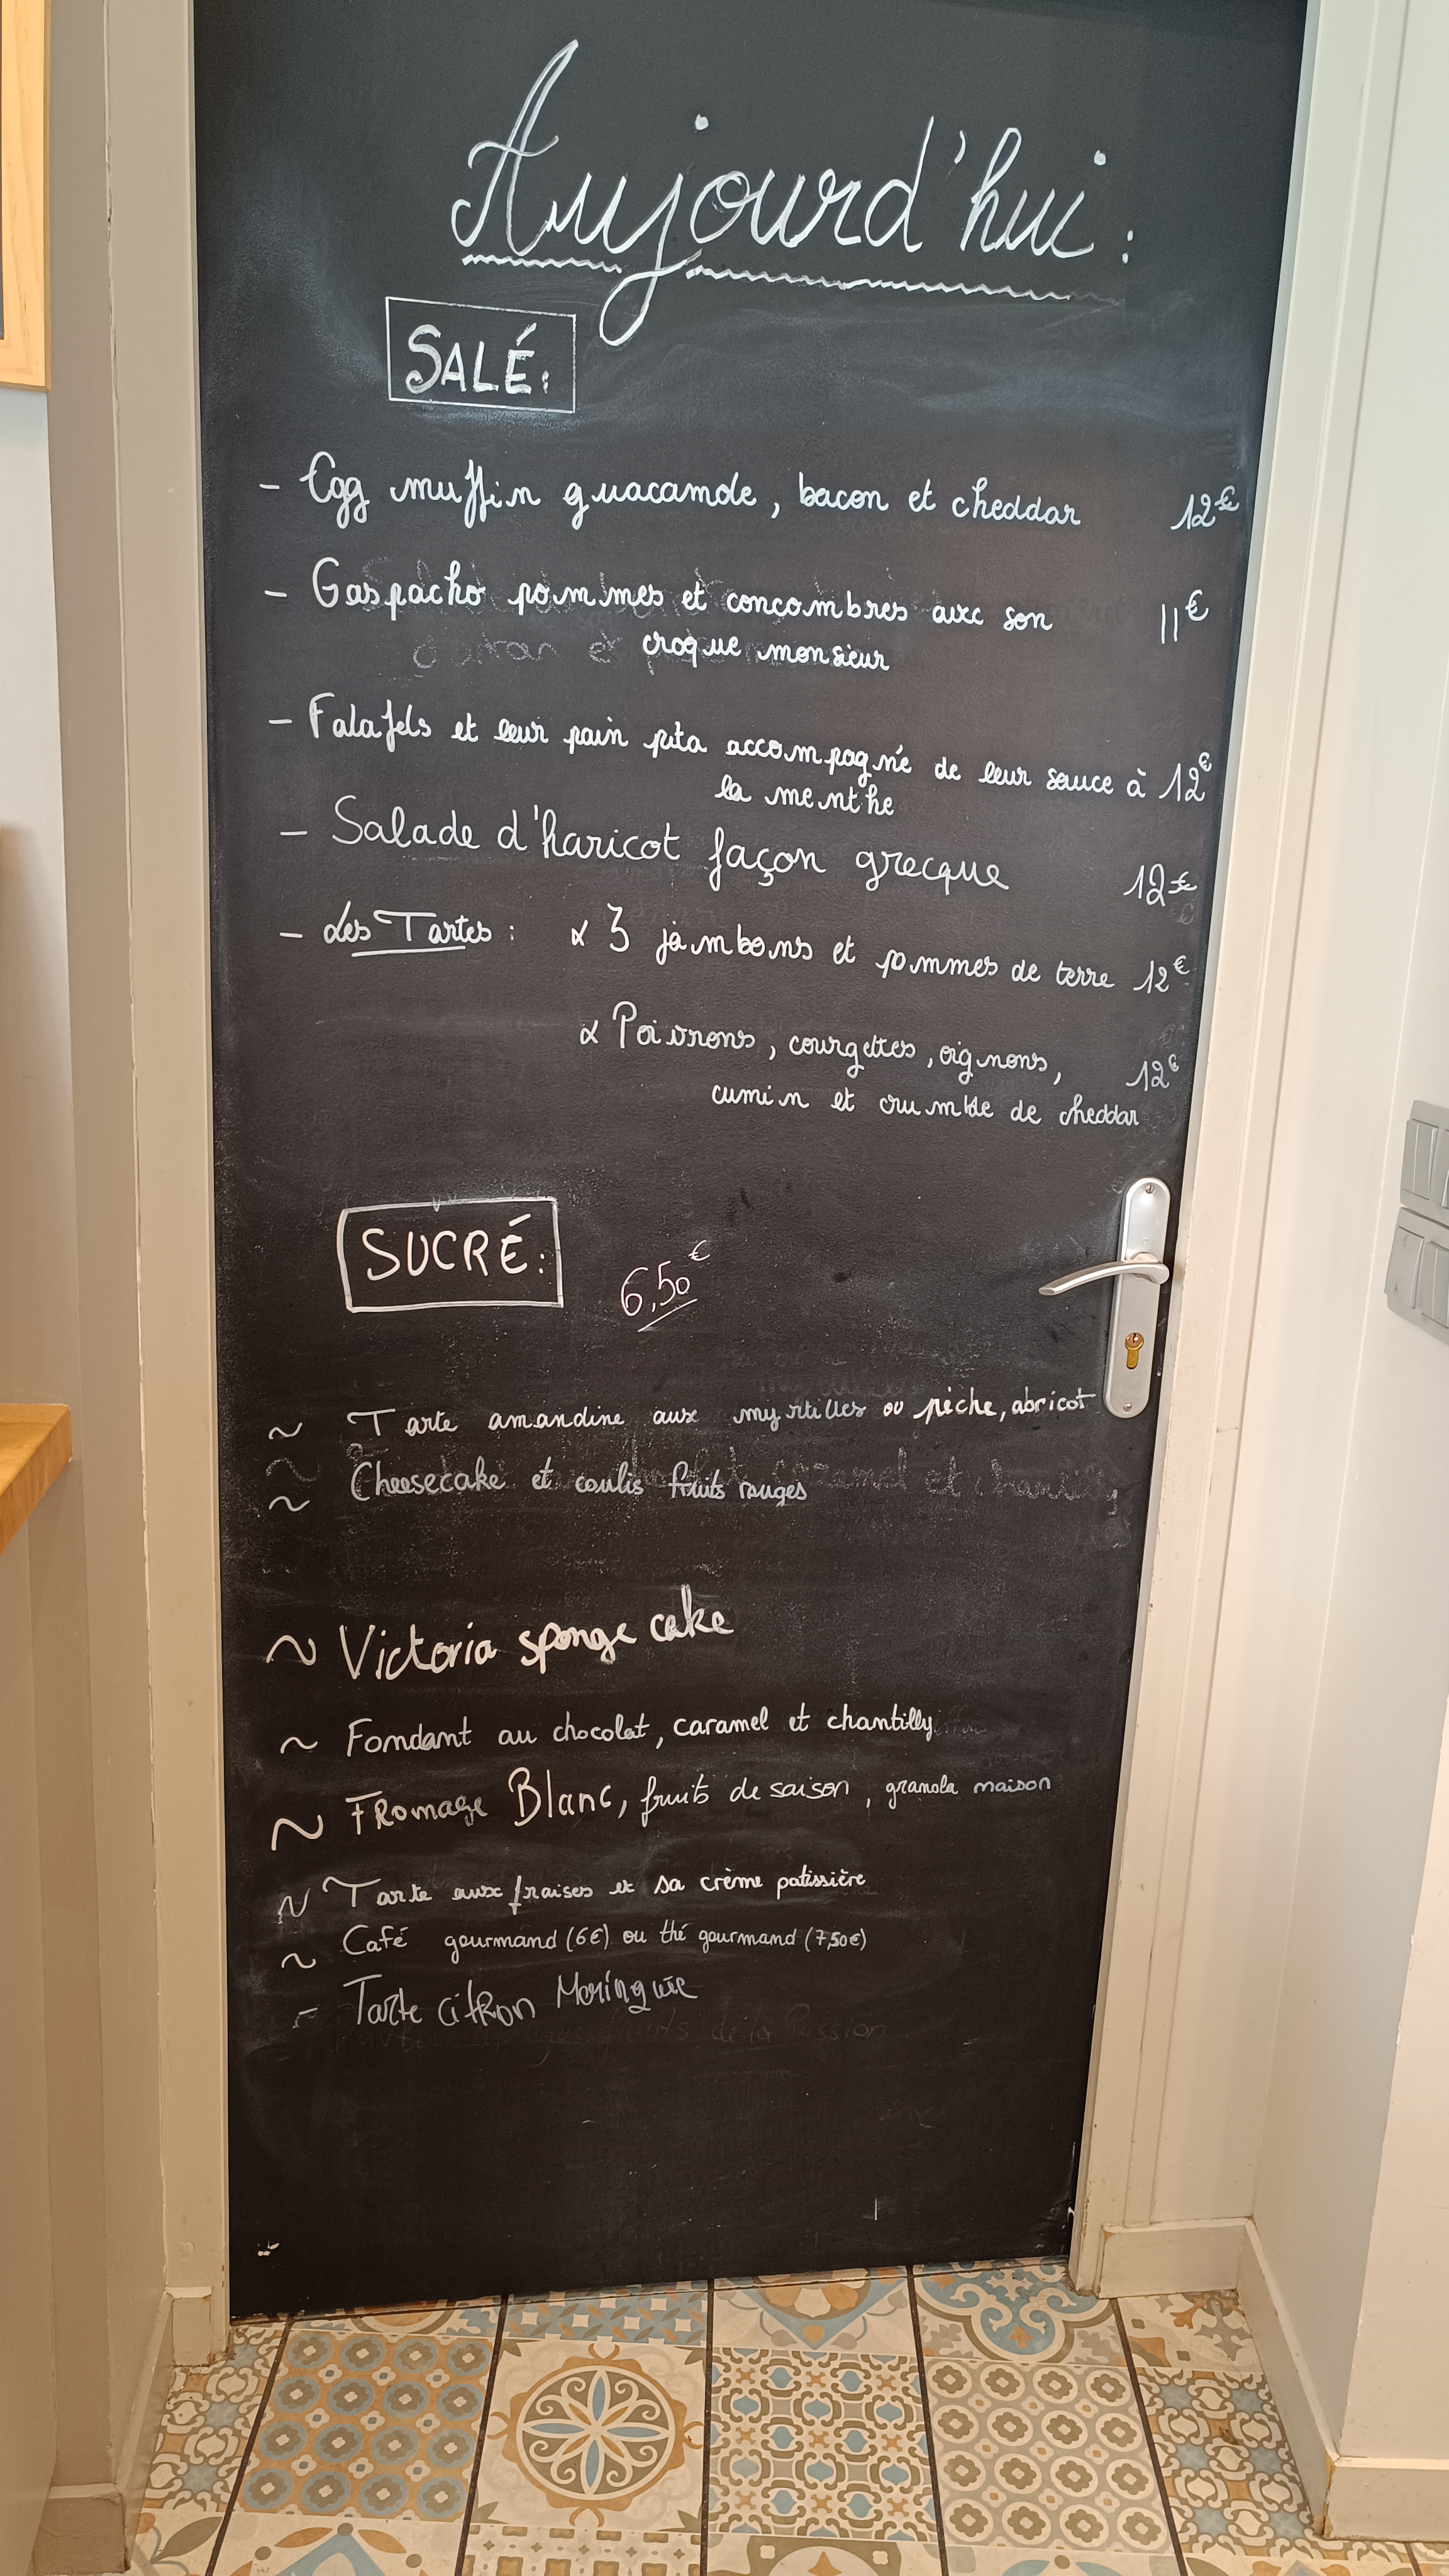 Aujourd'hui :
SALÉ :
- Egg muffin guacamole, bacon et cheddar 12€
- Gaspacho pommes et concombres avec son 11€
croque monsieur
- Falafels et leur pain pita accompagné de leur sauce à 12€
la menthe
- Salade d'haricot façon grecque 12€
- Les Tartes : x 3 jambons et pommes de terre 12€
x Poivrons, courgettes, oignons, 12€
cumin et crumble de cheddar
SUCRÉ : 6,50€
~ Tarte amandine aux myrtilles ou pêche, abricot
~ Cheesecake et coulis fruits rouges
~ Victoria sponge cake
~ Fondant au chocolat, caramel et chantilly
~ Fromage Blanc, fruits de saison, granola maison
~ Tarte aux fraises et sa crème patissière
~ Café gourmand (6€) ou thé gourmand (7,50€)
- Tarte citron Meringuée